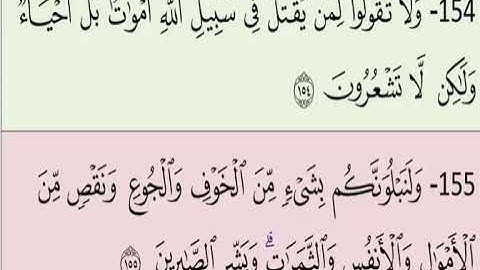 154- وَلَا تَقُولُوا۟ لِمَن يُقْتَلُ فِى سَبِيلِ ٱللَّهِ أَمْوَٰتٌۢ بَلْ أَحْيَآءٌ
وَلَـٰكِن لَّا تَشْعُرُونَ ١٥٤
155- وَلَنَبْلُوَنَّكُم بِشَىْءٍ مِّنَ ٱلْخَوْفِ وَٱلْجُوعِ وَنَقْصٍ مِّنَ
ٱلْأَمْوَٰلِ وَٱلْأَنفُسِ وَٱلثَّمَرَٰتِ ۗ وَبَشِّرِ ٱلصَّـٰبِرِينَ ١٥٥